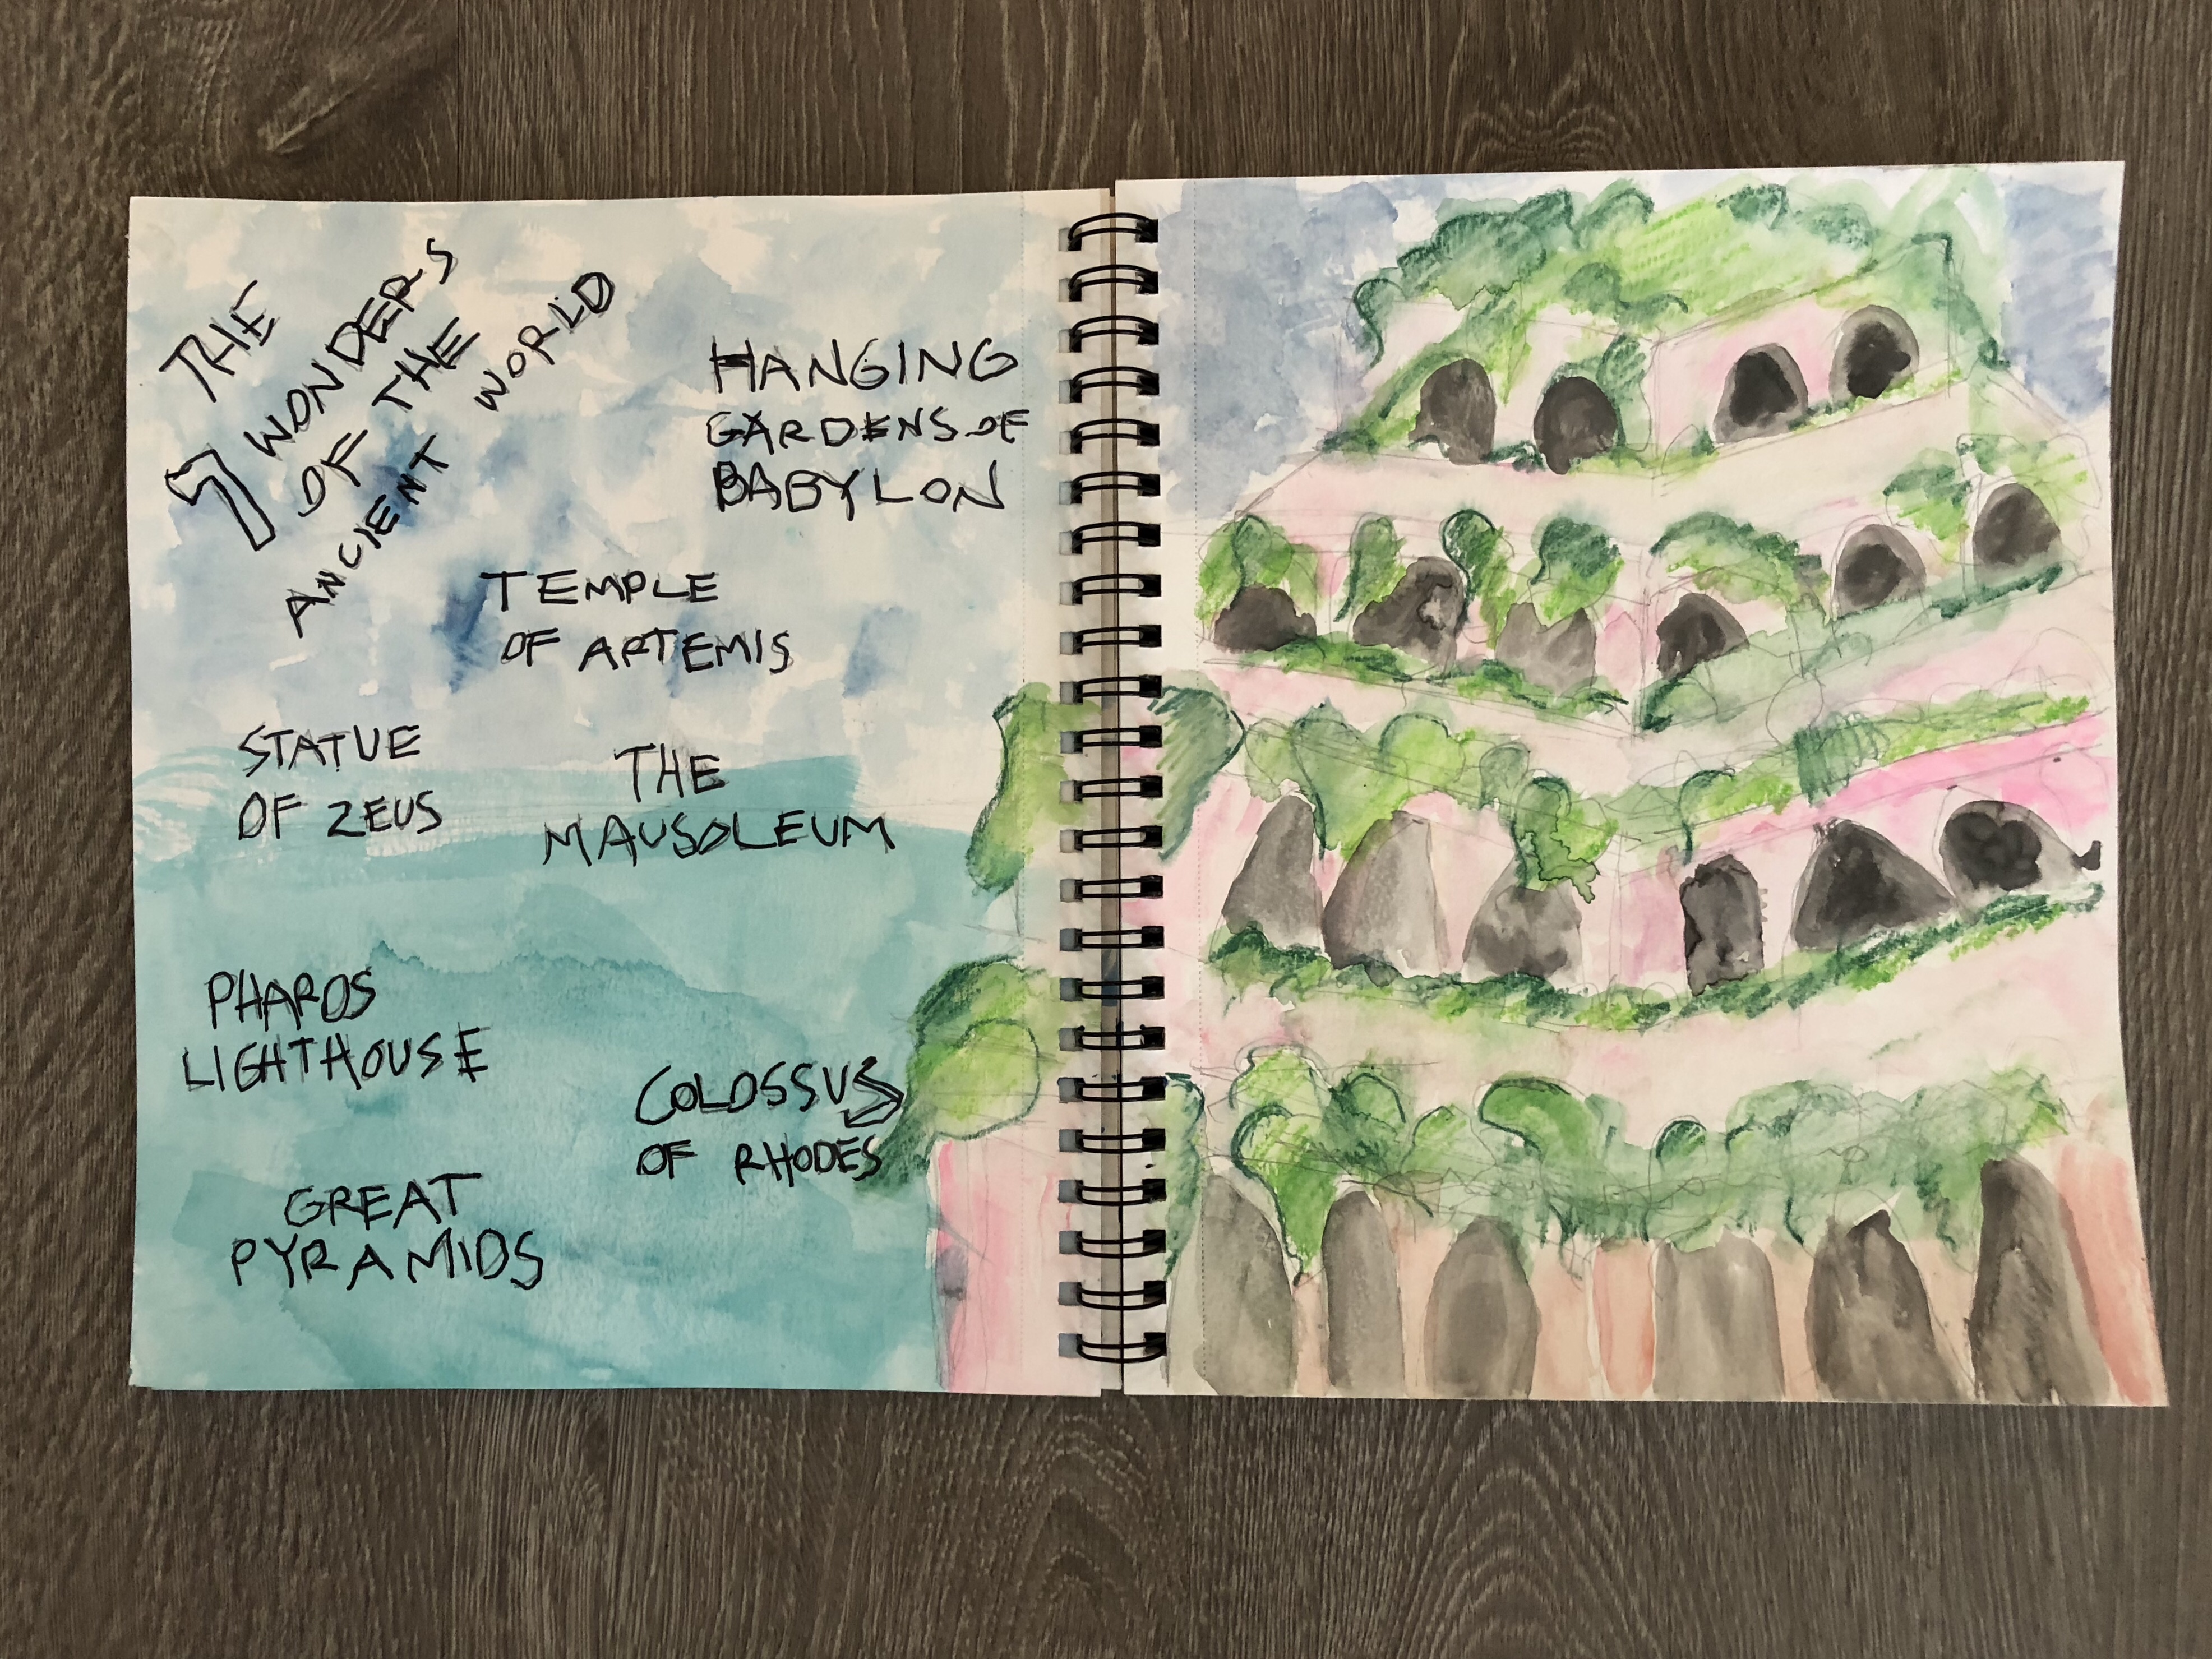 THE
7 WONDERS
OF THE
ANCIENT WORLD
HANGING
GARDENS OF
BABYLON
TEMPLE
OF ARTEMIS
STATUE
OF ZEUS
THE
MAUSOLEUM
PHAROS
LIGHTHOUSE
COLOSSUS
OF RHODES
GREAT
PYRAMIDS